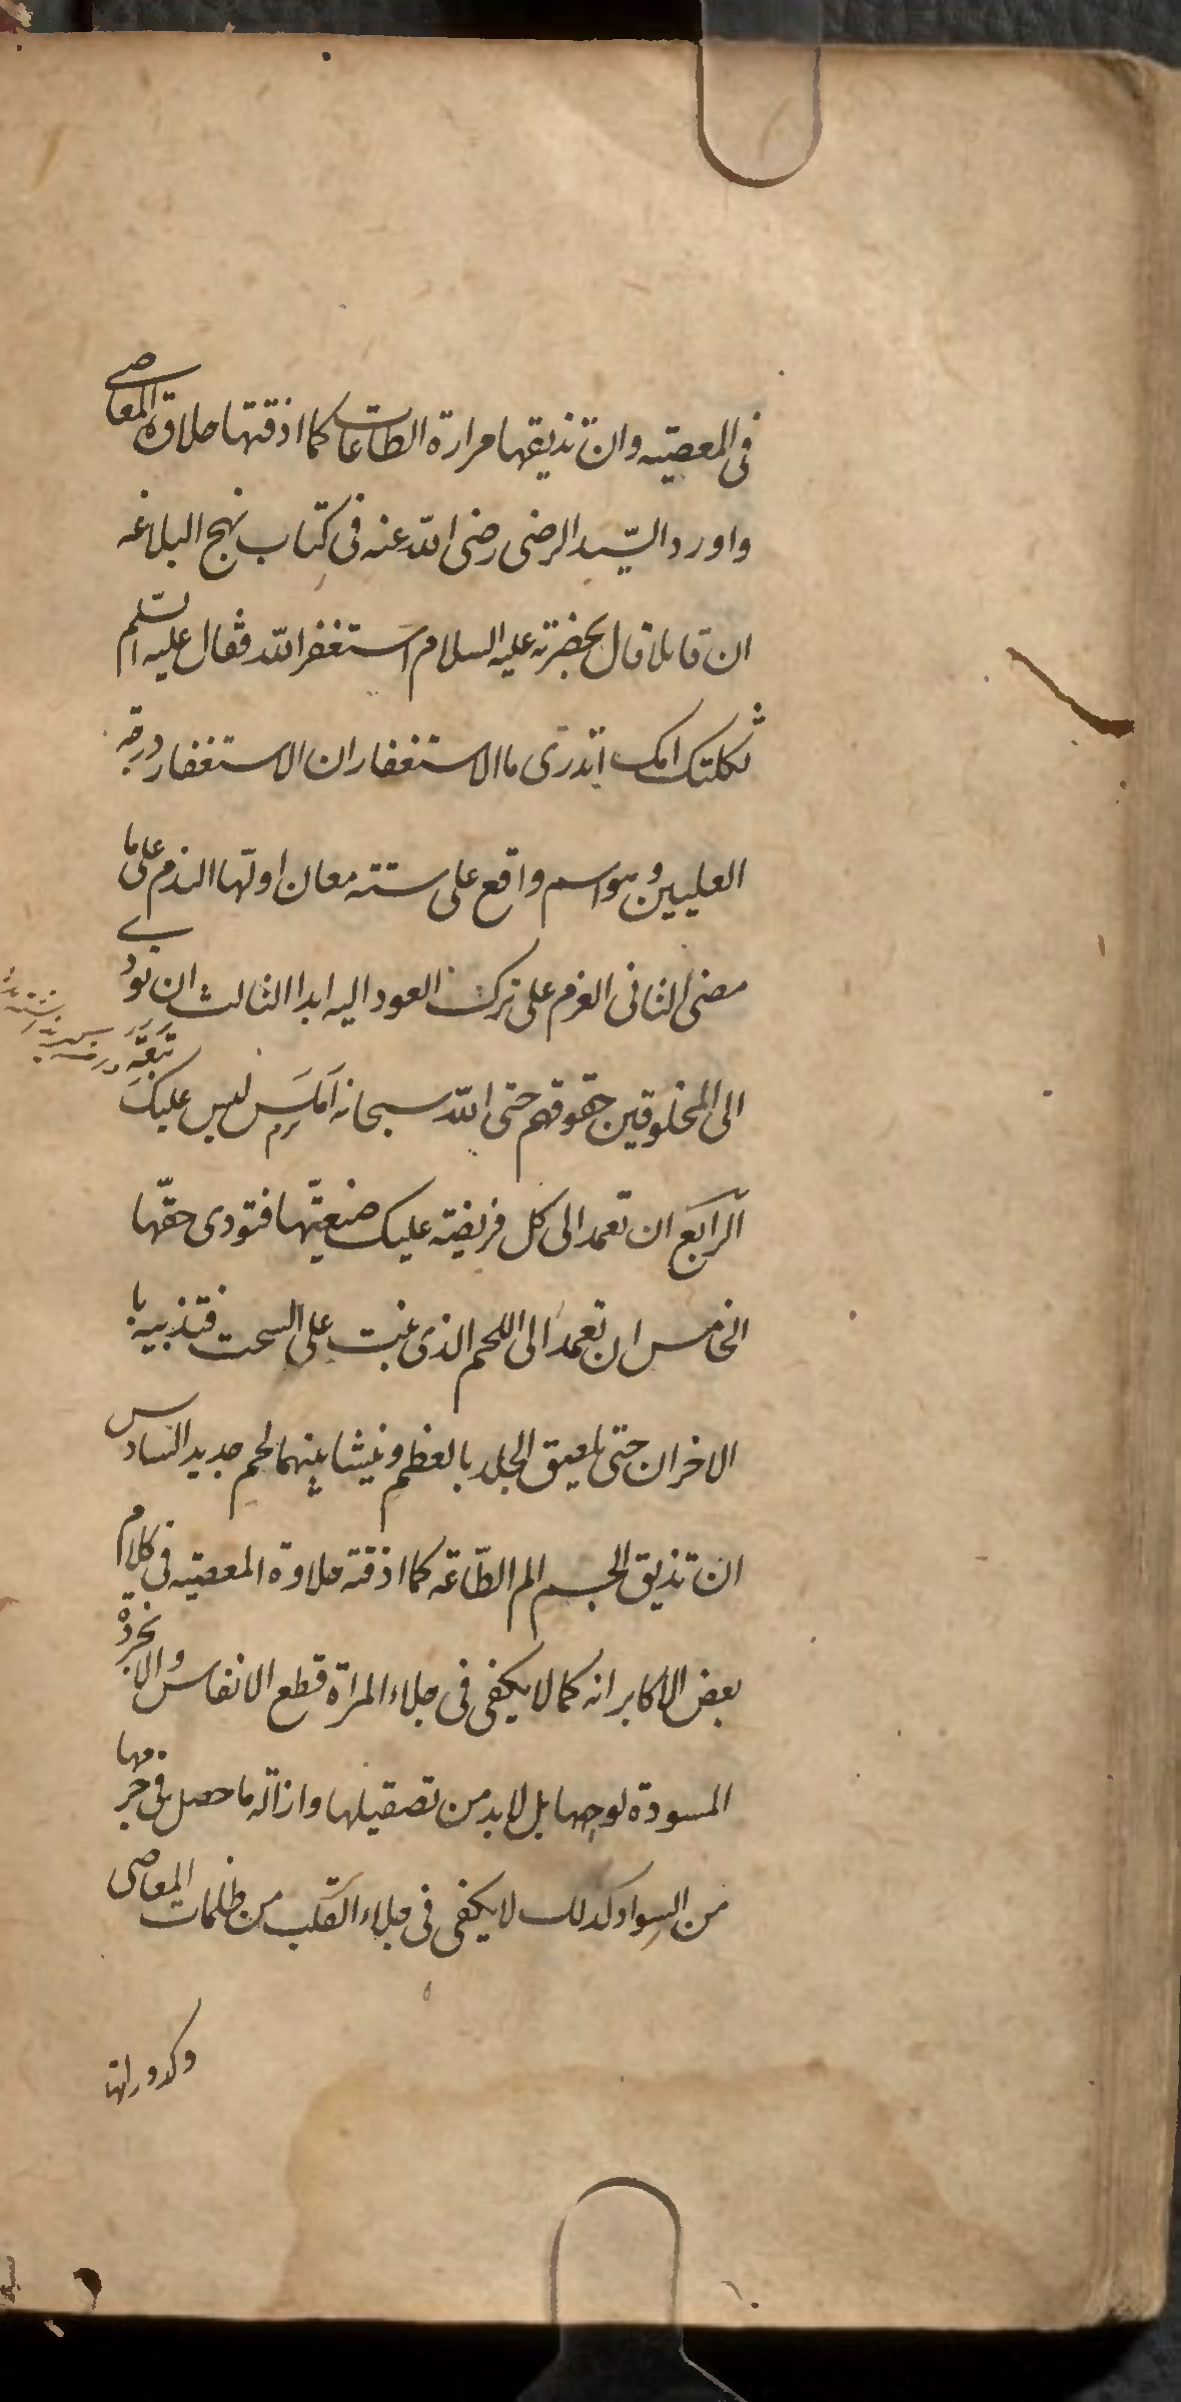 فى المعصية وان تذيقها مرارة الطاعات كما اذقتها حلاوة المعاصى
واورد السّيد الرضى رضى اللّه عنه فى كتاب نهج البلاغه
ان قايلا قال بحضرته عليه السلام استغفر اللّه فقال عليه السّلم
ثكلتك امك اتدرى ما الاستغفار ان الاستغفار درجه
العليين وهو اسم واقع على سته معان اولّها الندم على ما
مضى الثانى العزم على ترك العود اليه ابدا الثالث ان تودى
الى المخلوقين حقوقهم حتى اللّه سبحانه املس ليس عليك تبعَة
الرّابع ان تعمد الى كل فريضة عليك ضيعتّها فتودى حقّها
الخامس ان تعمد الى اللحم الذى نبت على السحت فتذيبه با
الاخران حتى تلصيق الجلد بالعظم وينشا بينهما لحم جديد السّادس
ان تذيق الجسم الم الطّاعة كما اذقته حلاوة المعصية فى كلام
بعض الاكابر انه كما لا يكفى فى جلاء المراة قطع الانفاس والابخرة
المسودة لوجهها بل لابد من تصقيلها وازالة ما حصل فى جرمها
من السواد كذلك لا يكفى فى جلاء القلب من ظلمات المعاصى
وكدوراتها